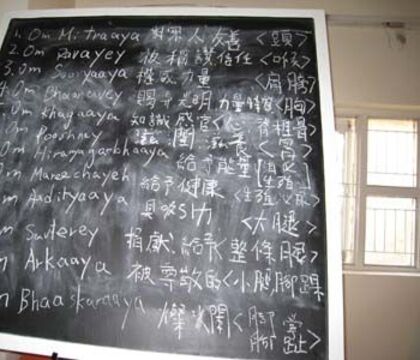 1. Om Mitraaya 對眾人友善 <頭>
2. Om Ravayey 被稱讚信任 <喉>
3. Om Sooryaaya 權威力量 <肩膀>
Om Bhaanavey 賜予光明 <胸>
Om Khagaaya 知識 感官 <心 脊椎骨>
Om Pooshney <胃>
Om Hiranyagarbhaaya 給予能量
Om Mareechayeh 給予健康
Om Aadityaaya 具吸引力 <大腿>
Om Savterey 捐獻 給予 整條腿>
Om Arkaaya 被尊敬的 <小腿 腳踝
Om Bhaaskaraaya 燦爛 <腳掌 腳趾>